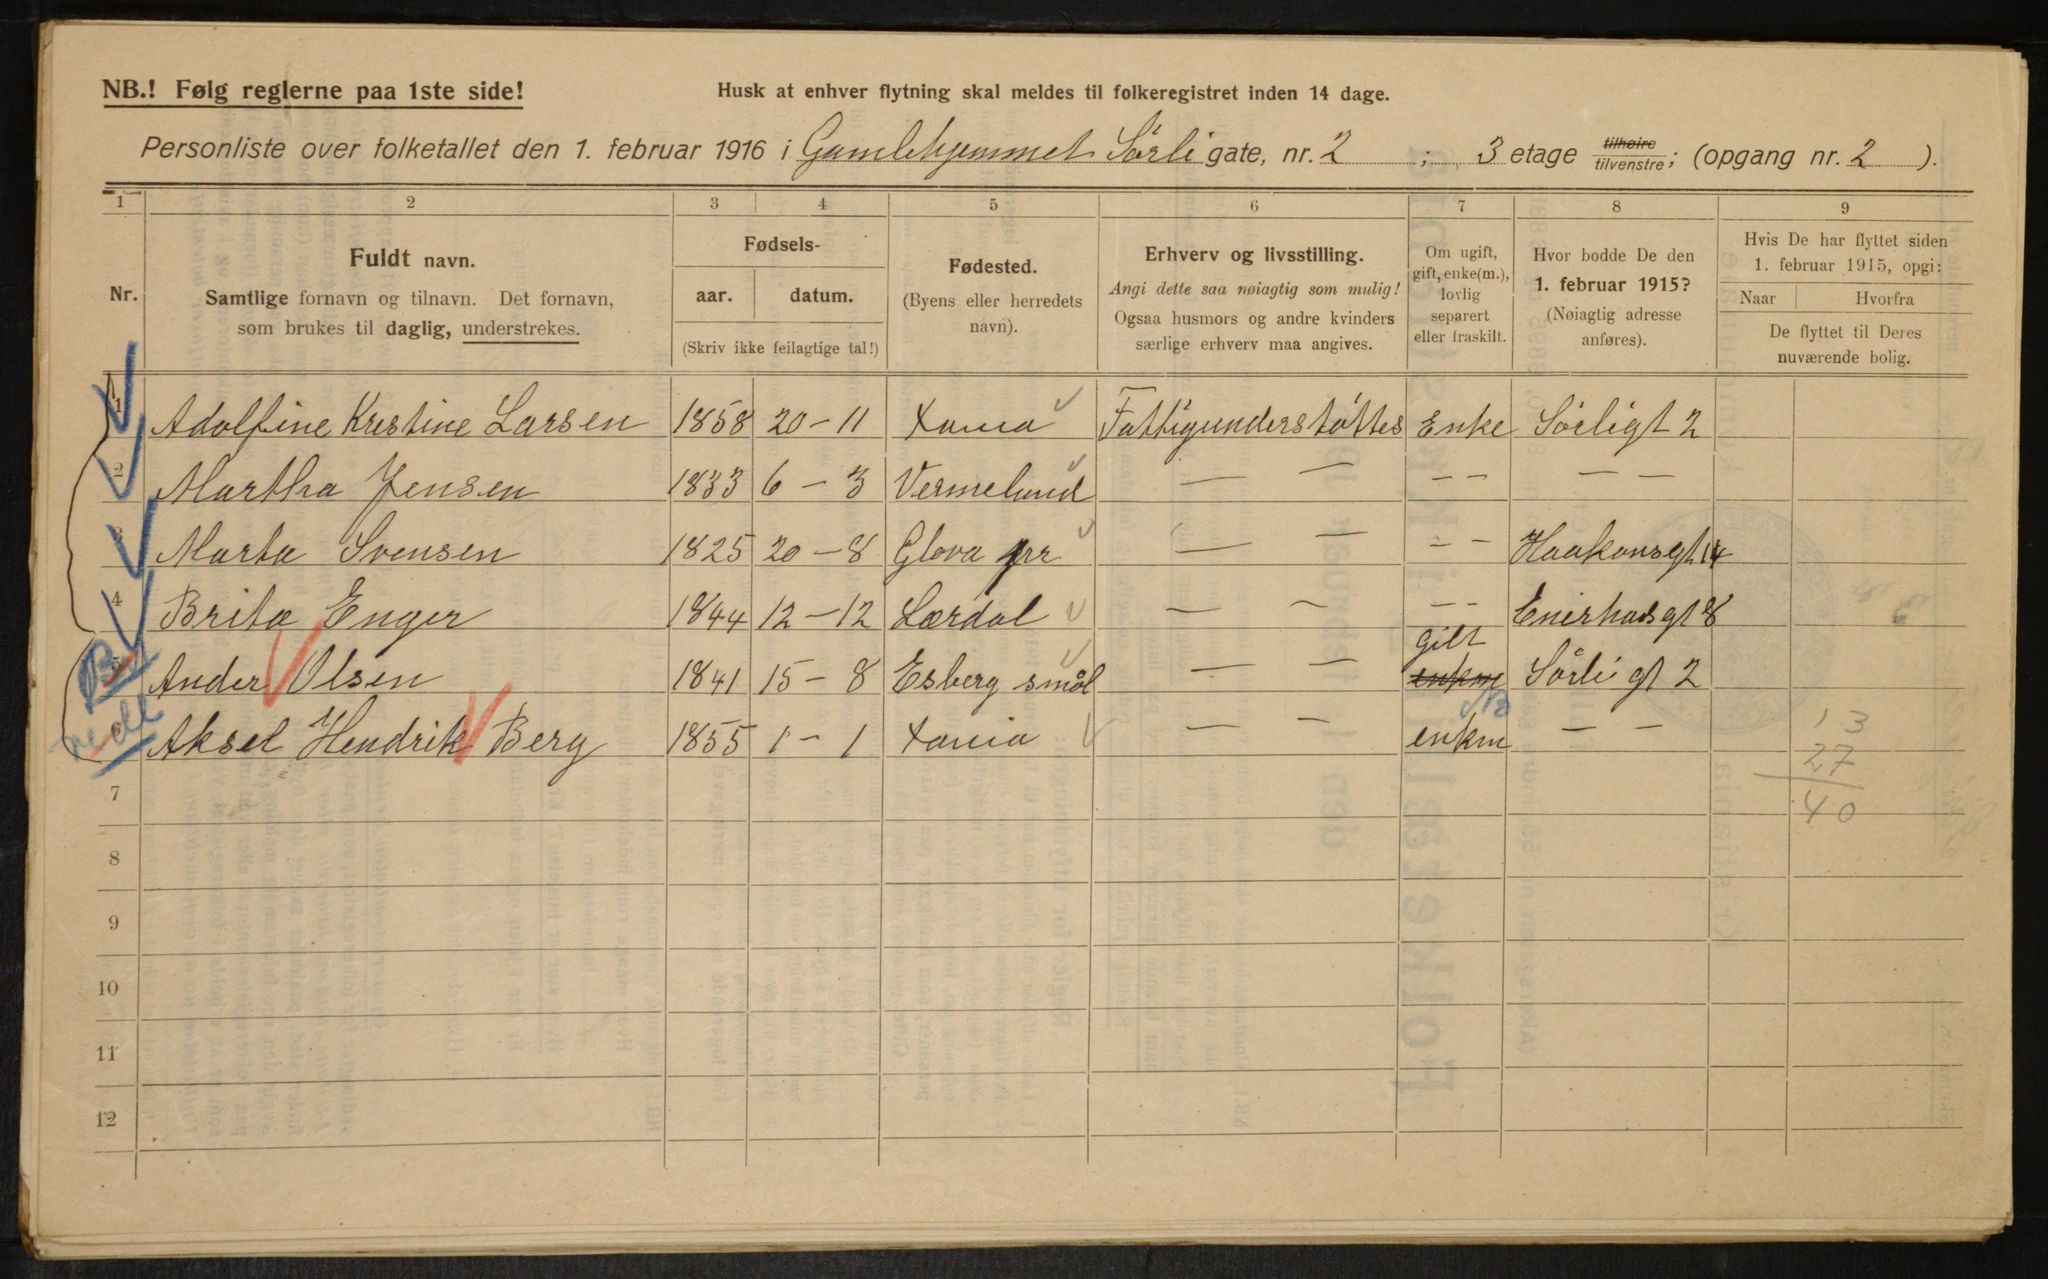 NB.! Følg reglerne paa 1ste side!
Husk at enhver flytning skal meldes til folkeregistret inden 14 dage.
Personliste over folketallet den 1. februar 1916 i Gamlehjemmet Sörli gate, nr. 2 ; 3 etage tilhøire tilvenstre; (opgang nr. 2 ).
1 2 3 4 5 6 7 8 9
Nr.
Fuldt navn.
Samtlige fornavn og tilnavn. Det fornavn,
som brukes til daglig, understrekes.
Fødsels-
aar. datum.
(Skriv ikke feilagtige tal!)
Fødested.
(Byens eller herredets
navn).
Erhverv og livsstilling.
Angi dette saa nøiagtig som mulig!
Ogsaa husmors og andre kvinders
særlige erhverv maa angives.
Om ugift,
gift, enke(m.),
lovlig
separert
eller fraskilt.
Hvor bodde De den
1. februar 1915?
(Nøiagtig adresse
anføres).
Hvis De har flyttet siden
1. februar 1915, opgi:
Naar Hvorfra
De flyttet til Deres
nuværende bolig.
1 Adolfine Kristine Larsen 1858 20-11 Xania Fattigunderstöttes Enke Sörligt 2
2 Martha Jensen 1833 6-3 Vermelund — — — — — —
3 Marta Svensen 1825 20-8 Glova pr — — — — Haakonsgt 14
4 Brita Enger 1844 12-12 Lærdal — — — — Enerhaugt 8
5 Ander Olsen 1841 15-8 Esberg smål — — enkm gift Sörligt 2
6 Aksel Hendrik Berg 1855 1-1 Xania — — enkm — —
13
27
40
7
8
9
10
11
12